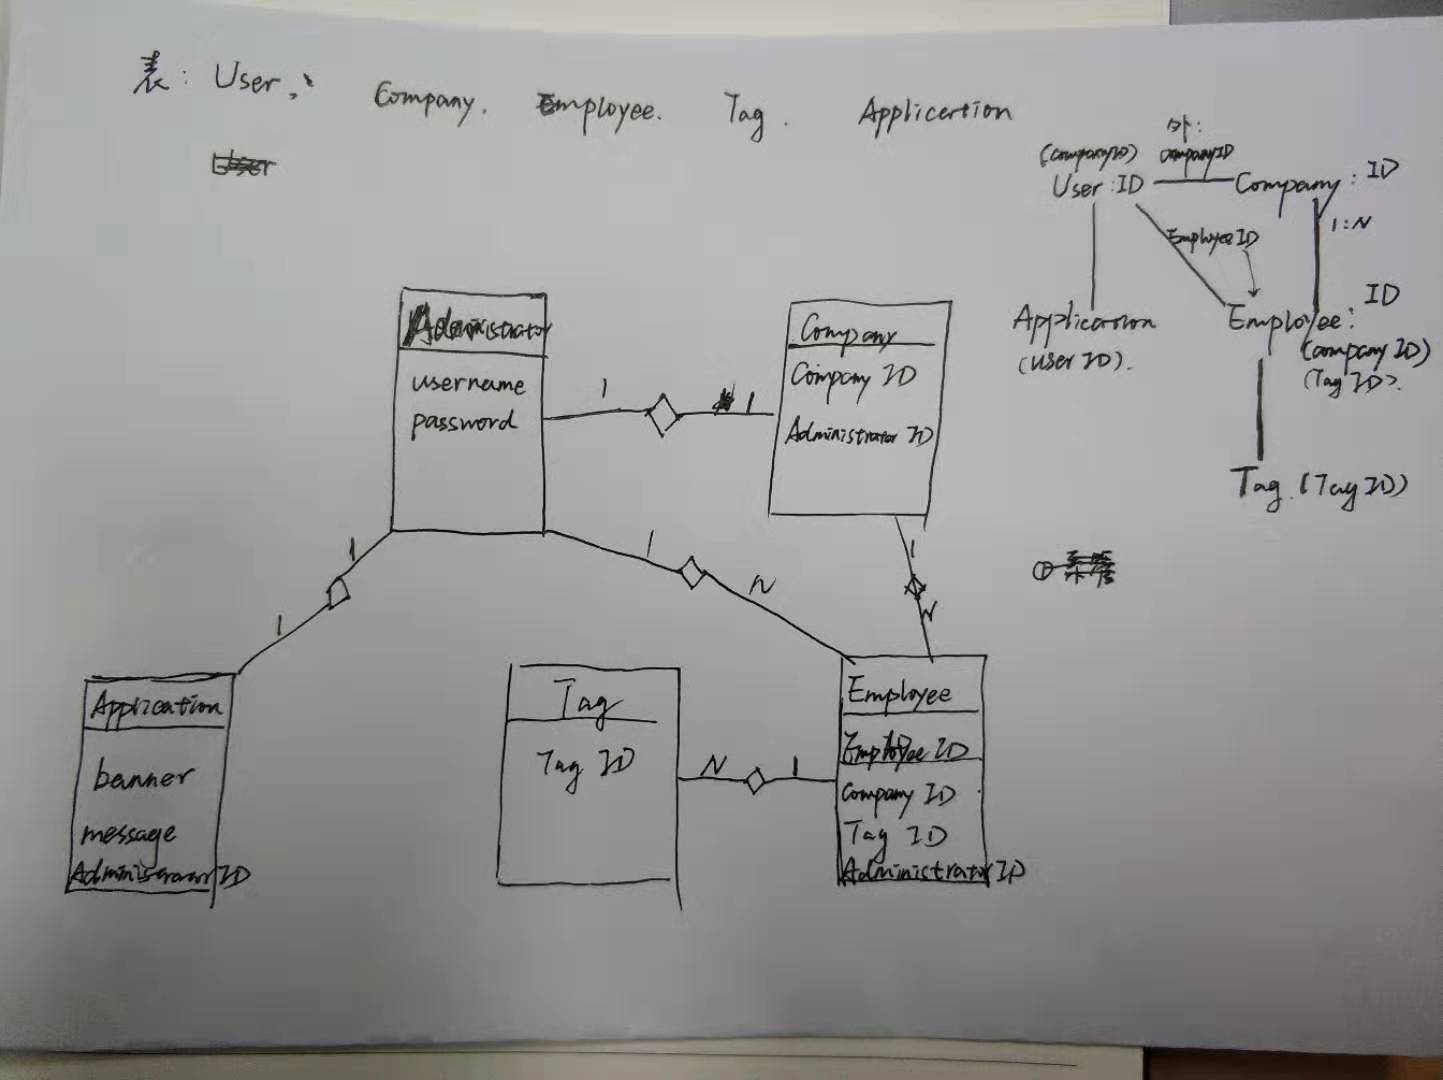 表: User、 Company. Employee. Tag. Applicertion
外:
(companyID) companyID
User:ID Company: ID
1:N
EmployeeID
ID
Application Employee:
(User ID). (Company ID)
(Tag ID).
Tag.(Tag ID)
Administrator
username
password
1 1
Company
Company ID
Administrator ID
1 1
1 N
1 N
Application
banner
message
Administrator ID
Tag
Tag ID
N 1
Employee
Employee ID
Company ID
Tag ID
Administrator ID
①